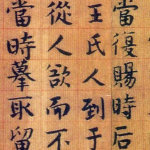 當復賜時后
王氏人到于
從人欲而不
當時摹取留